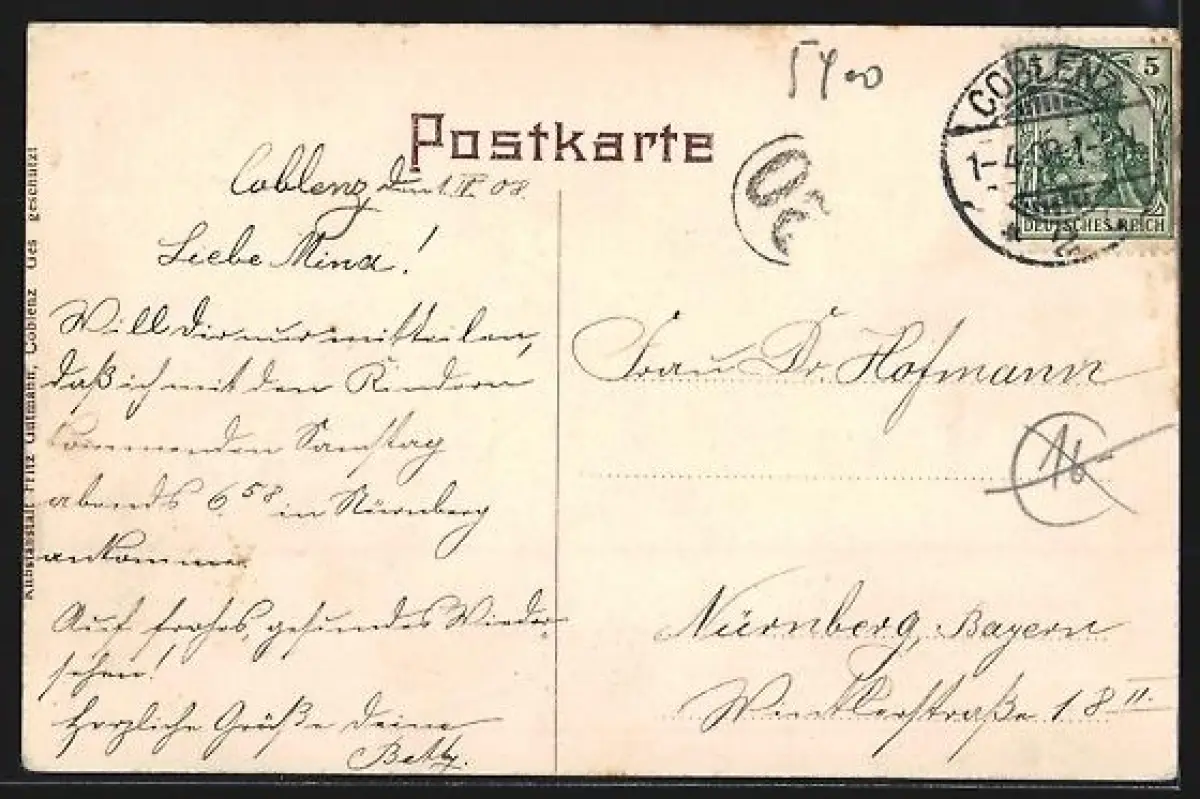 5400
Postkarte
COBLENZ
1-4.08.1-
12
5
5
DEUTSCHES REICH
Coblenz den 1. IV. 08.
Liebe Mina!
Will Dir nur mitteilen,
daß ich mit den Kindern
kommenden Samstag
abends 6 58 in Nürnberg
ankomme.
Auf frohes, gesundes Wieder-
sehen!
Herzliche Grüße Deine
Betty.
Frau Dr. Hofmann
16
Nürnberg, Bayern
Winklerstraße 18 II.
Kunstanstalt Fritz Gutmann, Coblenz Ges geschützt